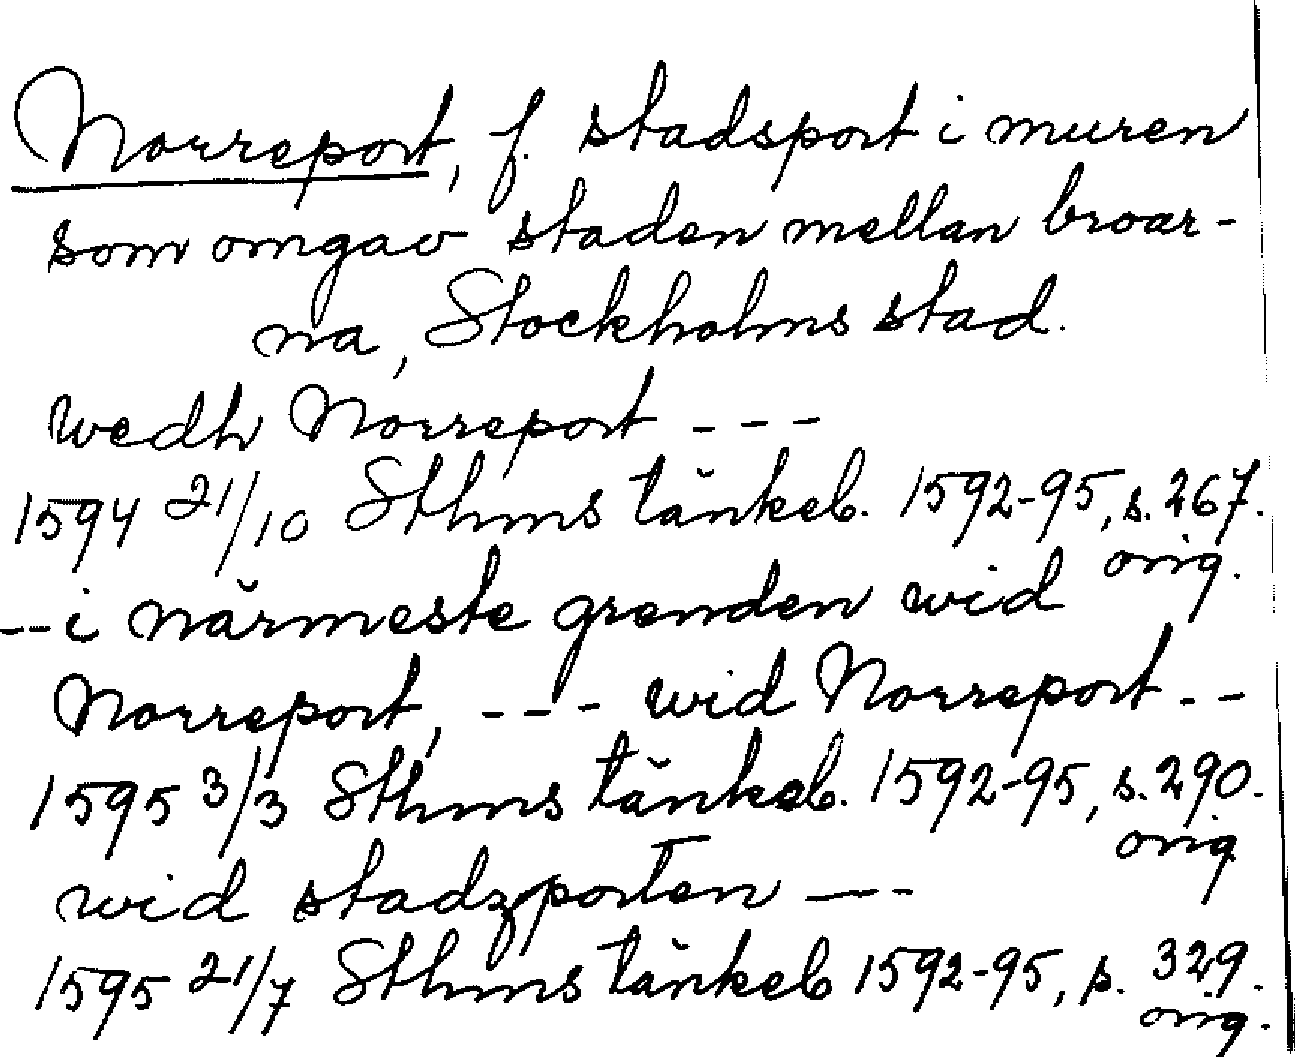 Norreport, f. stadsport i muren
som omgav staden mellan broar-
na, Stockholms stad.
wedh Norreport ---
1594 21/10 Sthms tänkeb. 1592-95, s. 267.
orig.
--i närmeste grenden wid
Norreport, --- wid Norreport --
1595 3/3 Sthms tänkeb. 1592-95, s. 290.
orig
wid stadzporten ---
1595 21/7 Sthms tänkeb 1592-95, s. 329.
orig.